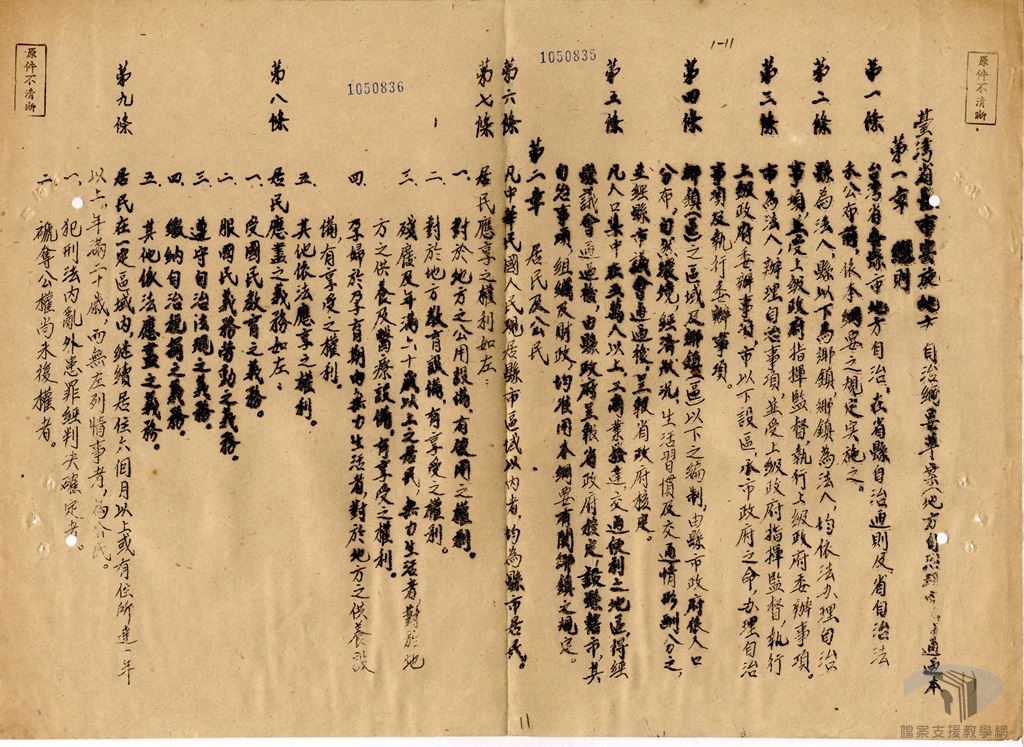 原件不清晰
1-11
臺灣省縣市實施地方自治綱要草案(地方自治 通過本
第一章 總則
第一條 台灣省各縣市地方自治,在省縣自治通則及省自治法
未公布前,依本綱要之規定實施之。
第二條 縣為法人,縣以下為鄉鎮,鄉鎮為法人,均依法办理自治
事項,並受上級政府指揮監督執行上級政府委辦事項。
第三條 市為法人,辦理自治事項,並受上級政府指揮監督,執行
上級政府委辦事項,市以下設區,承市政府之命,办理自治
事項及執行委辦事項。
第四條 鄉鎮(區)之區域及鄉鎮(區)以下之編制,由縣市政府依人口
分布,自然環境,經濟狀況,生活習慣及交通情形劃分之,
並經縣市議會通過後,呈報省政府核定。
第五條 凡人口集中在五萬人以上,工商業發達,交通便利之地區,得經
縣議會通過後,由縣政府呈報省政府核定,設縣轄市,其
自治事項,組織及財政,均准用本綱要有關鄉鎮之規定。
1050835
第二章 居民及公民
第六條 凡中華民國人民現居縣市區域以內者,均為縣市居民。
第七條 居民應享之權利如左:
一、對於地方之公用設備,有使用之權利。
二、對於地方教育設備,有享受之權利。
三、殘廢及年滿六十歲以上之居民,無力生活者,對於地
方之供養及醫療設備,有享受之權利。
1050836
四、孕婦於孕育期內無力生活者,對於地方之供養設
備,有享受之權利。
五、其他依法應享之權利。
第八條 居民應盡之義務如左:
一、受國民教育之義務。
二、服國民義務勞動之義務。
三、遵守自治法規之義務。
四、繳納自治稅捐之義務。
五、其他依法應盡之義務。
第九條 居民在一定區域內,繼續居住六個月以上或有住所達一年
以上,年滿二十歲,而無左列情事者,為公民。
一、犯刑法內亂外患罪經判決確定者。
二、褫奪公權尚未復權者。
原件不清晰
11
檔案支援教學網